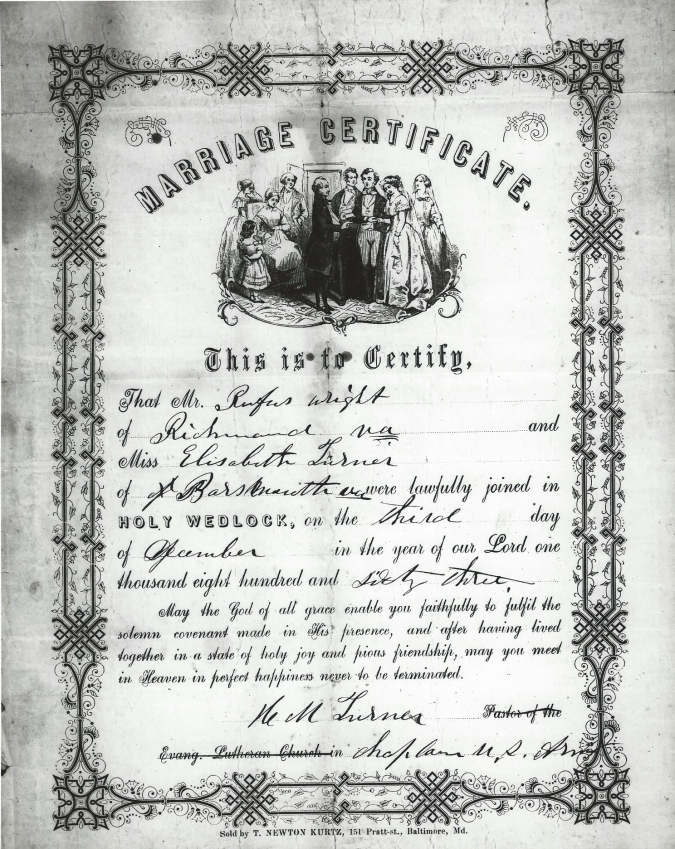 MARRIAGE CERTIFICATE.
This is to Certify,
That Mr. Rufus Wright
of Richmond va and
Miss Elisabeth Turner
of were lawfully joined in
HOLY WEDLOCK, on the third day
of December in the year of our Lord one
thousand eight hundred and sixty three,
May the God of all grace enable you faithfully to fulfil the
solemn covenant made in His presence, and after having lived
together in a state of holy joy and pious friendship, may you meet
in Heaven in perfect happiness never to be terminated.
H M Turner Pastor of the
Evang. Lutheran Church in Chaplain U. S. Army
Sold by T. NEWTON KURTZ, 151 Pratt-st., Baltimore, Md.